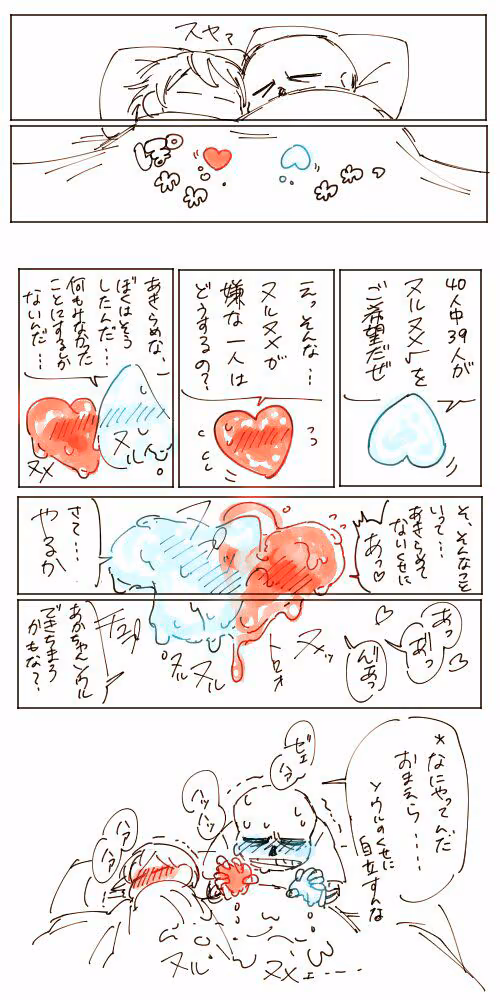 スヤァ
ぽ
40人中39人が
ヌルヌメ√を
ご希望だぜ
えっそんな…
ヌルヌメが
嫌な一人は
どうするの?
あきらめな、
ぼくはそう
したんだ…
何もみなかった
ことにするしか
ないんだ…
ヌメ
ヌルん
そ、そんなこと
いって…
あきらめて
ないくせに
あっ♡
さて…
やるか
あっ
あ゛っ
んあっ
ヌメッ
トロォ
ヌルヌル
チュッ
あかちゃんソウル
できちまう
かもな?
*なにやってんだ
おまえら……
ソウルのくせに
自立すんな
ゼェ
ハァ
ハッハッ
ハァ
ハァ
ヌル
ヌメェ…